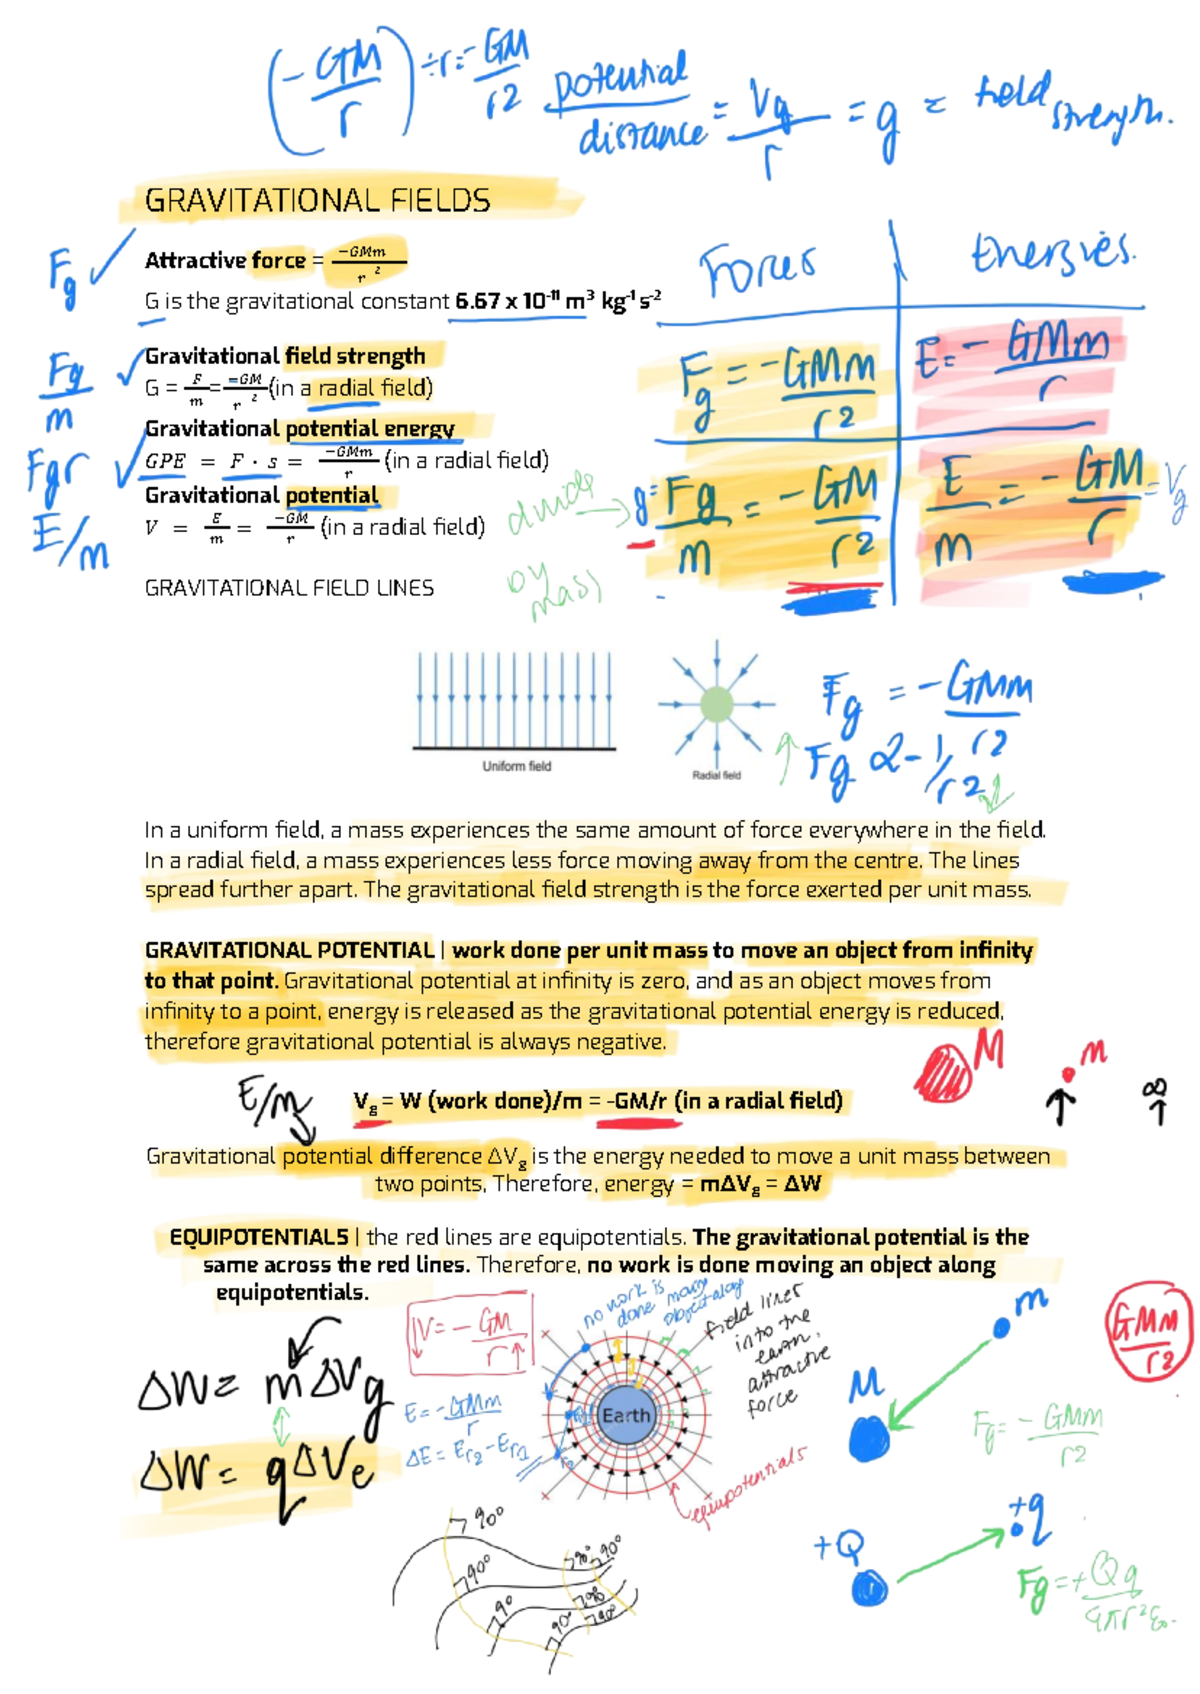 (-GM/r) ÷r = -GM/r2 potential/distance = Vg/r = g = field strength.
GRAVITATIONAL FIELDS
Fg ✓ Attractive force = −GMm/r ²
G is the gravitational constant 6.67 x 10⁻¹¹ m³ kg⁻¹ s⁻²
Forces Energies.
Fg = -GMm/r2 E = -GMm/r
Fg/m ✓ Gravitational field strength
G = F/m = −GM/r ² (in a radial field)
Gravitational potential energy
Fgr ✓ GPE = F · s = −GMm/r (in a radial field)
Gravitational potential
E/m V = E/m = −GM/r (in a radial field)
divide by mass → g = Fg/m = -GM/r2 E/m = -GM/r = Vg
GRAVITATIONAL FIELD LINES
Uniform field
Radial field
Fg = -GMm/r2
↑ Fg α -1/r2 ↓
In a uniform field, a mass experiences the same amount of force everywhere in the field.
In a radial field, a mass experiences less force moving away from the centre. The lines
spread further apart. The gravitational field strength is the force exerted per unit mass.
GRAVITATIONAL POTENTIAL | work done per unit mass to move an object from infinity
to that point. Gravitational potential at infinity is zero, and as an object moves from
infinity to a point, energy is released as the gravitational potential energy is reduced,
therefore gravitational potential is always negative.
M m ∞
E/m Vg = W (work done)/m = -GM/r (in a radial field)
Gravitational potential difference ΔVg is the energy needed to move a unit mass between
two points. Therefore, energy = mΔVg = ΔW
EQUIPOTENTIALS | the red lines are equipotentials. The gravitational potential is the
same across the red lines. Therefore, no work is done moving an object along
equipotentials.
ΔW = mΔVg
ΔW = qΔVe
↓V = -GM/r↑
E = -GMm/r
ΔE = Er2 - Er1
no work is
done moving
object along
field lines
into the
earth.
attractive
force
Earth
equipotentials
90°
90° 90° 90°
90° 90°
90° 90°
m
M
GMm/r2
Fg = -GMm/r2
+Q +q
Fg = +Qq/4πr²ε₀